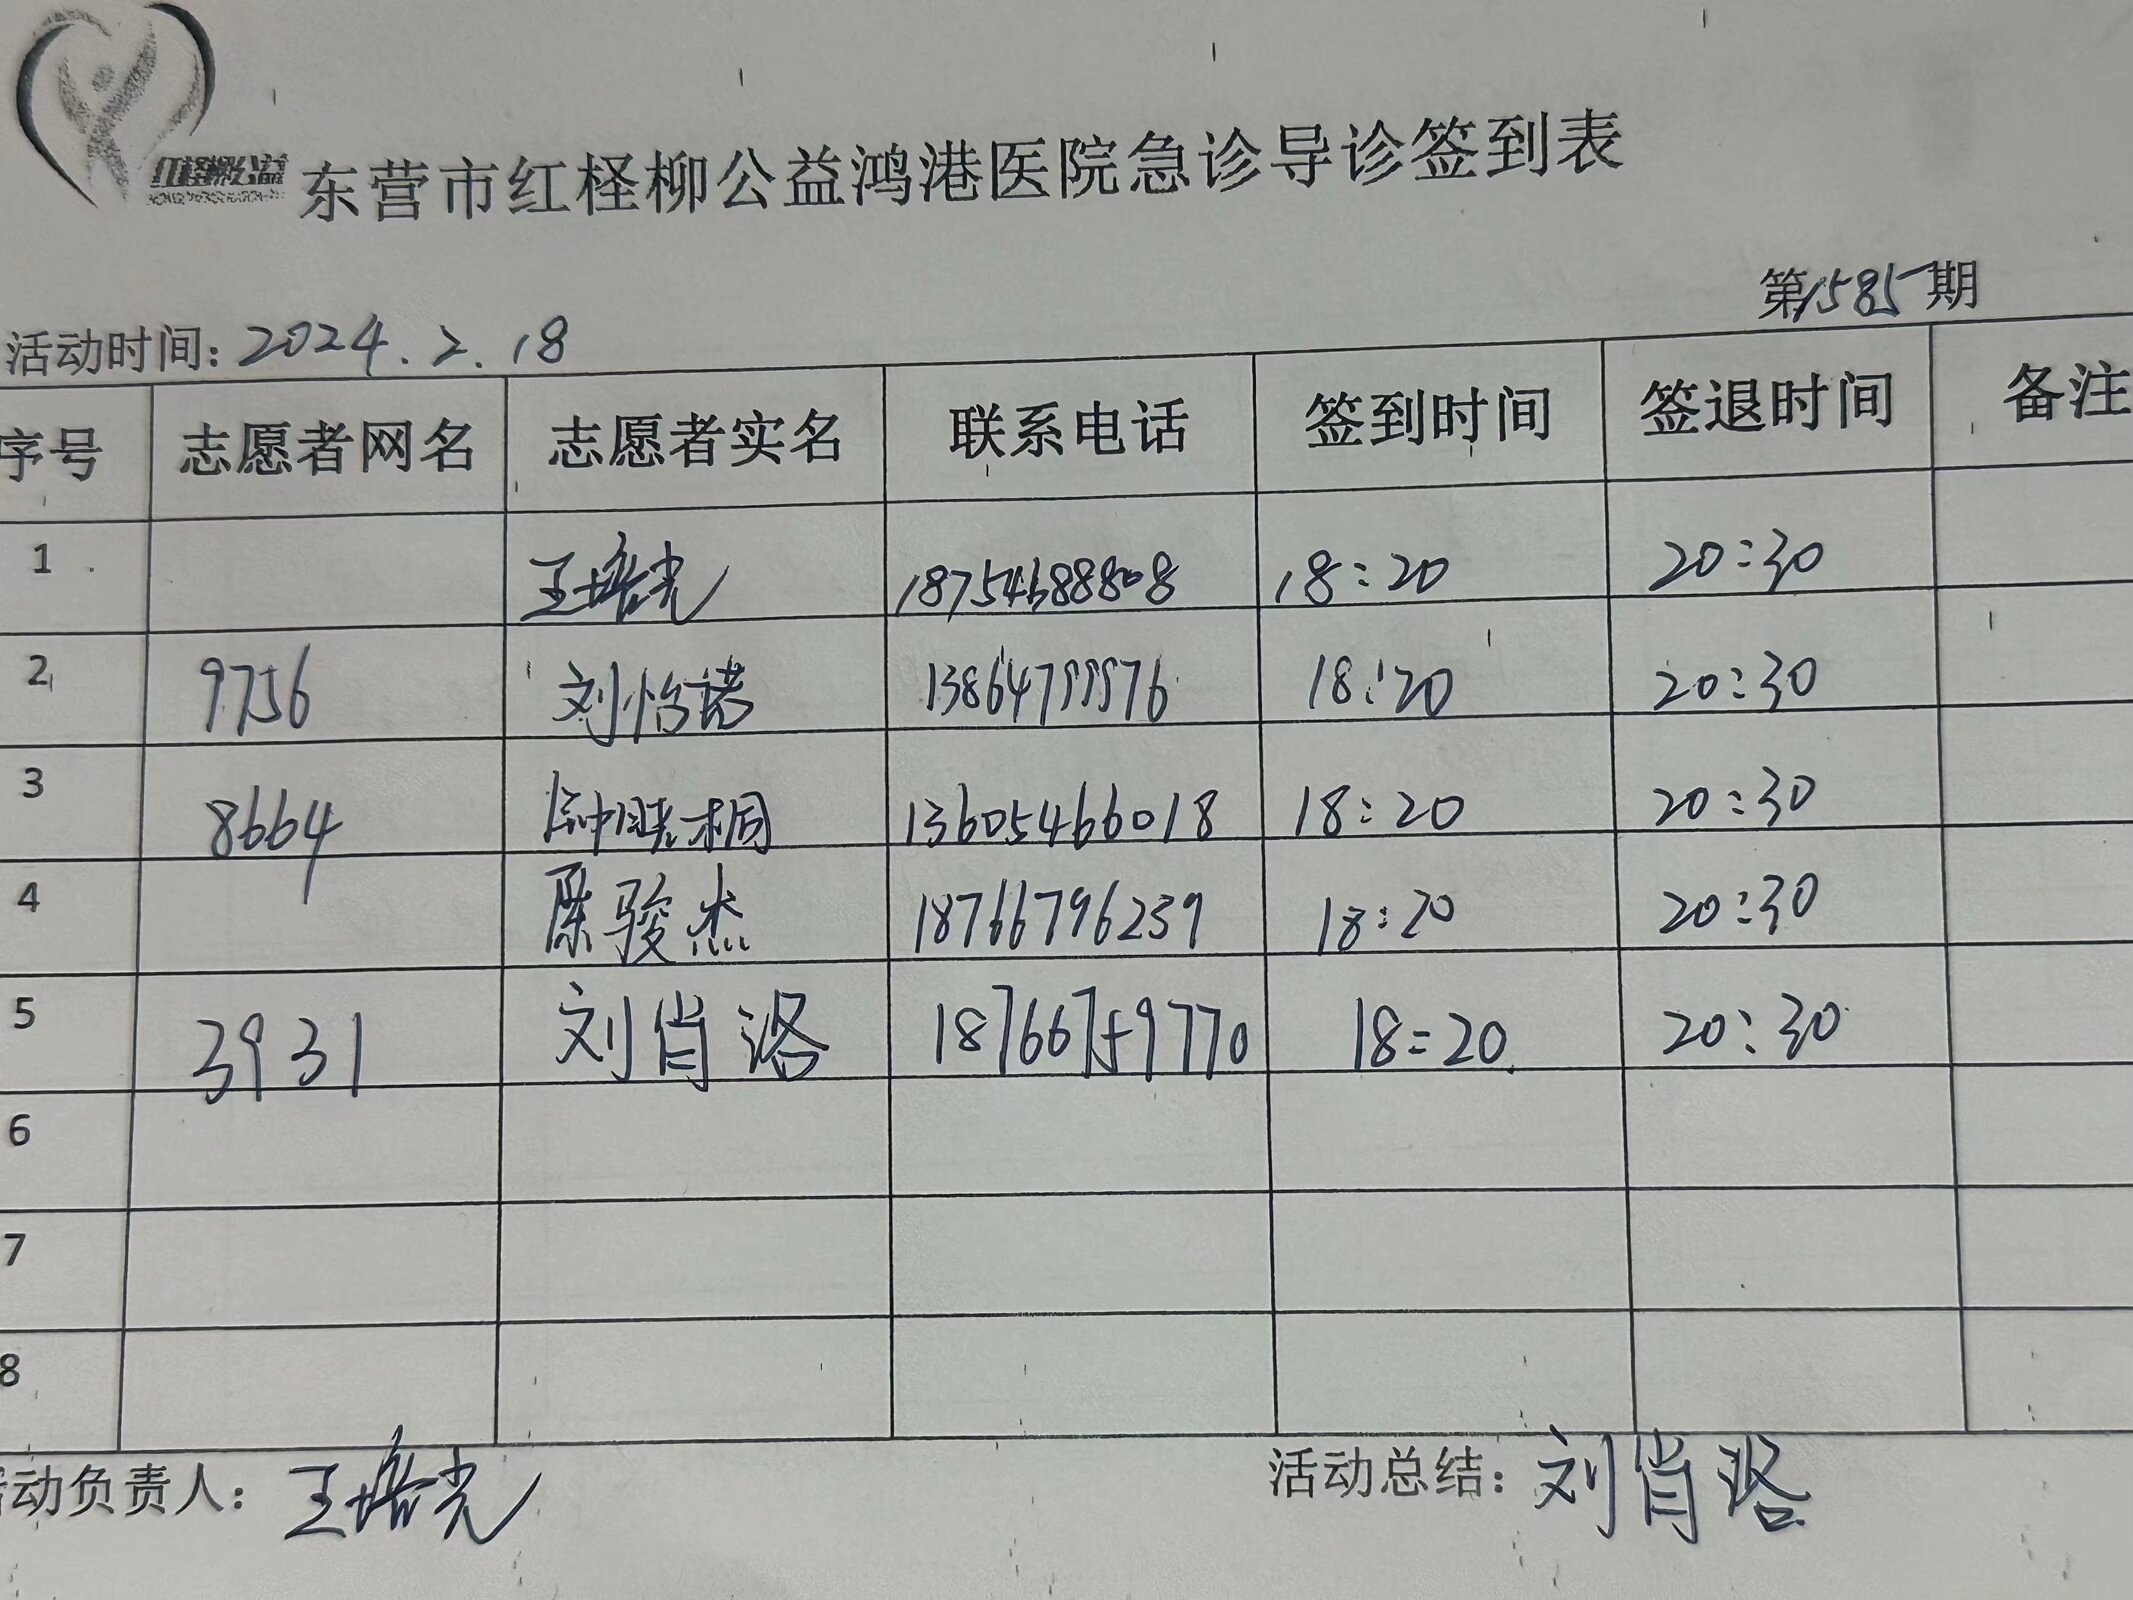 红柽柳公益
东营市红柽柳公益鸿港医院急诊导诊签到表
第1585期
活动时间：2024.2.18
序号 志愿者网名 志愿者实名 联系电话 签到时间 签退时间 备注
1 王培光 18754688808 18:20 20:30
2 9756 刘怡诺 13864799976 18:20 20:30
3 8664 钟晓桐 13605466018 18:20 20:30
4 陈骏杰 18766796239 18:20 20:30
5 3931 刘肖洛 18766759770 18:20 20:30
6
7
8
活动负责人：王培光 活动总结：刘肖洛